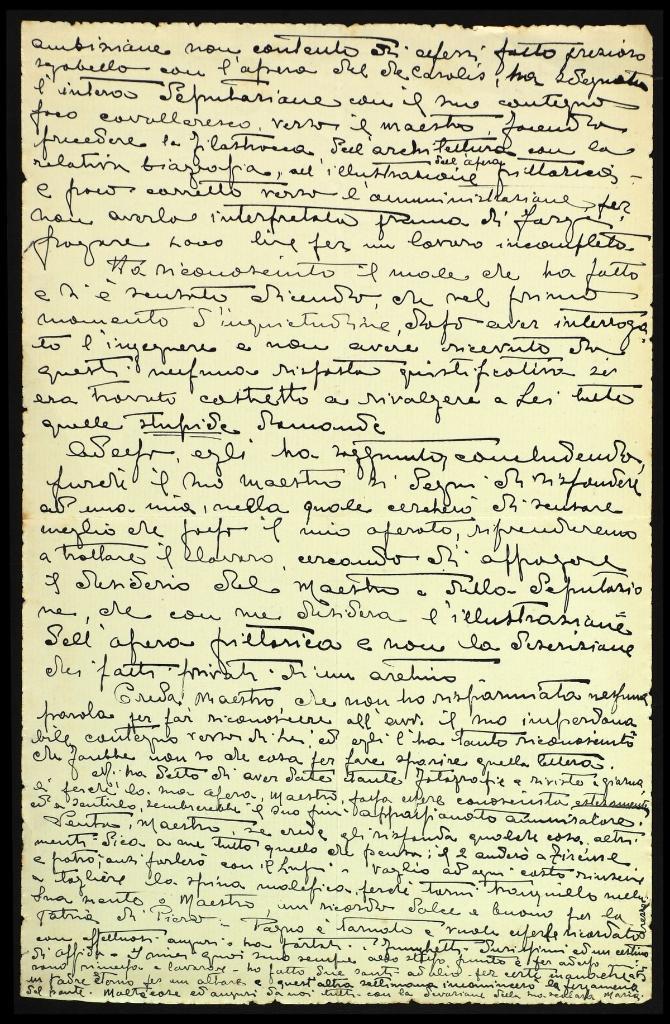 ambizione non contento di essersi fatto prezioso
sgabello con l'opera del De Carolis, ha sdegnato
l'intera Deputazione con il suo contegno
poco cavalleresco, verso il maestro, facendo
precedere la filastrocca dell'architettura con la
relativa biografia, all'illustrazione dell'opera pittorica,
e poco corretto verso l'amministrazione, per
non averla interpretata prima di farge
pagare 2000 lire per un lavoro incompleto
Ha riconosciuto il male che ha fatto
e si è scusato dicendo, che nel primo
momento d'inquietudine, dopo aver interroga
to l'ingegnere e non avere ricevuto da
questi nessuna risposta giustificativa si
era trovato costretto a rivolgere a Lei tutte
quelle stupide domande
Adesso, egli ha soggiunto, concludendo,
purché il suo maestro si degni di rispondere
ad una mia, nella quale cercherò di scusare
meglio che posso il mio operato, riprenderemo
a trattare il lavoro, cercando di appagare
il desiderio del Maestro e della Deputazio
ne, che con me desidera l'illustrazione
dell'opera pittorica e non la descrizione
dei fatti privati di un archivio
Creda, Maestro, che non ho risparmiata nessuna
parola per far riconoscere all'avv. il suo imperdona
bile contegno verso di Lei, ed egli l'ha tanto riconosciuto
che farebbe non so che cosa per fare sparire quella lettera.
Mi ha detto di aver dato tante fotografie a riviste e giorna
li perché la sua opera, Maestro, possa essere conosciuta estesamente
ed a sentirlo, sembrerebbe il suo più appassionato ammiratore.
Pertanto, Maestro, se crede gli risponda qualche cosa, altri
menti dica a me tutto quello che pensa; il 2 andrò a Firenze
e potrò anzi parlare con il Lupi. Voglio ad ogni costo riuscire
a togliere la spina malefica perché torni tranquillo nella
Sua mente o Maestro, un ricordo dolce e buono per la
Patria di Piero. Pagno è tornato e vuole essere ricordato
con affettuosi auguri
di affido. I miei quasi sono sempre allo stesso punto e per adesso
sono rimessa a lavorare. ho fatto due santi ad olio per certe
un padre eterno per un altare e quest'altra settimana incomincerò la pergamena
del ponte. Molte cose ed auguri da noi tutti. con la devozione della sua scolara Maria